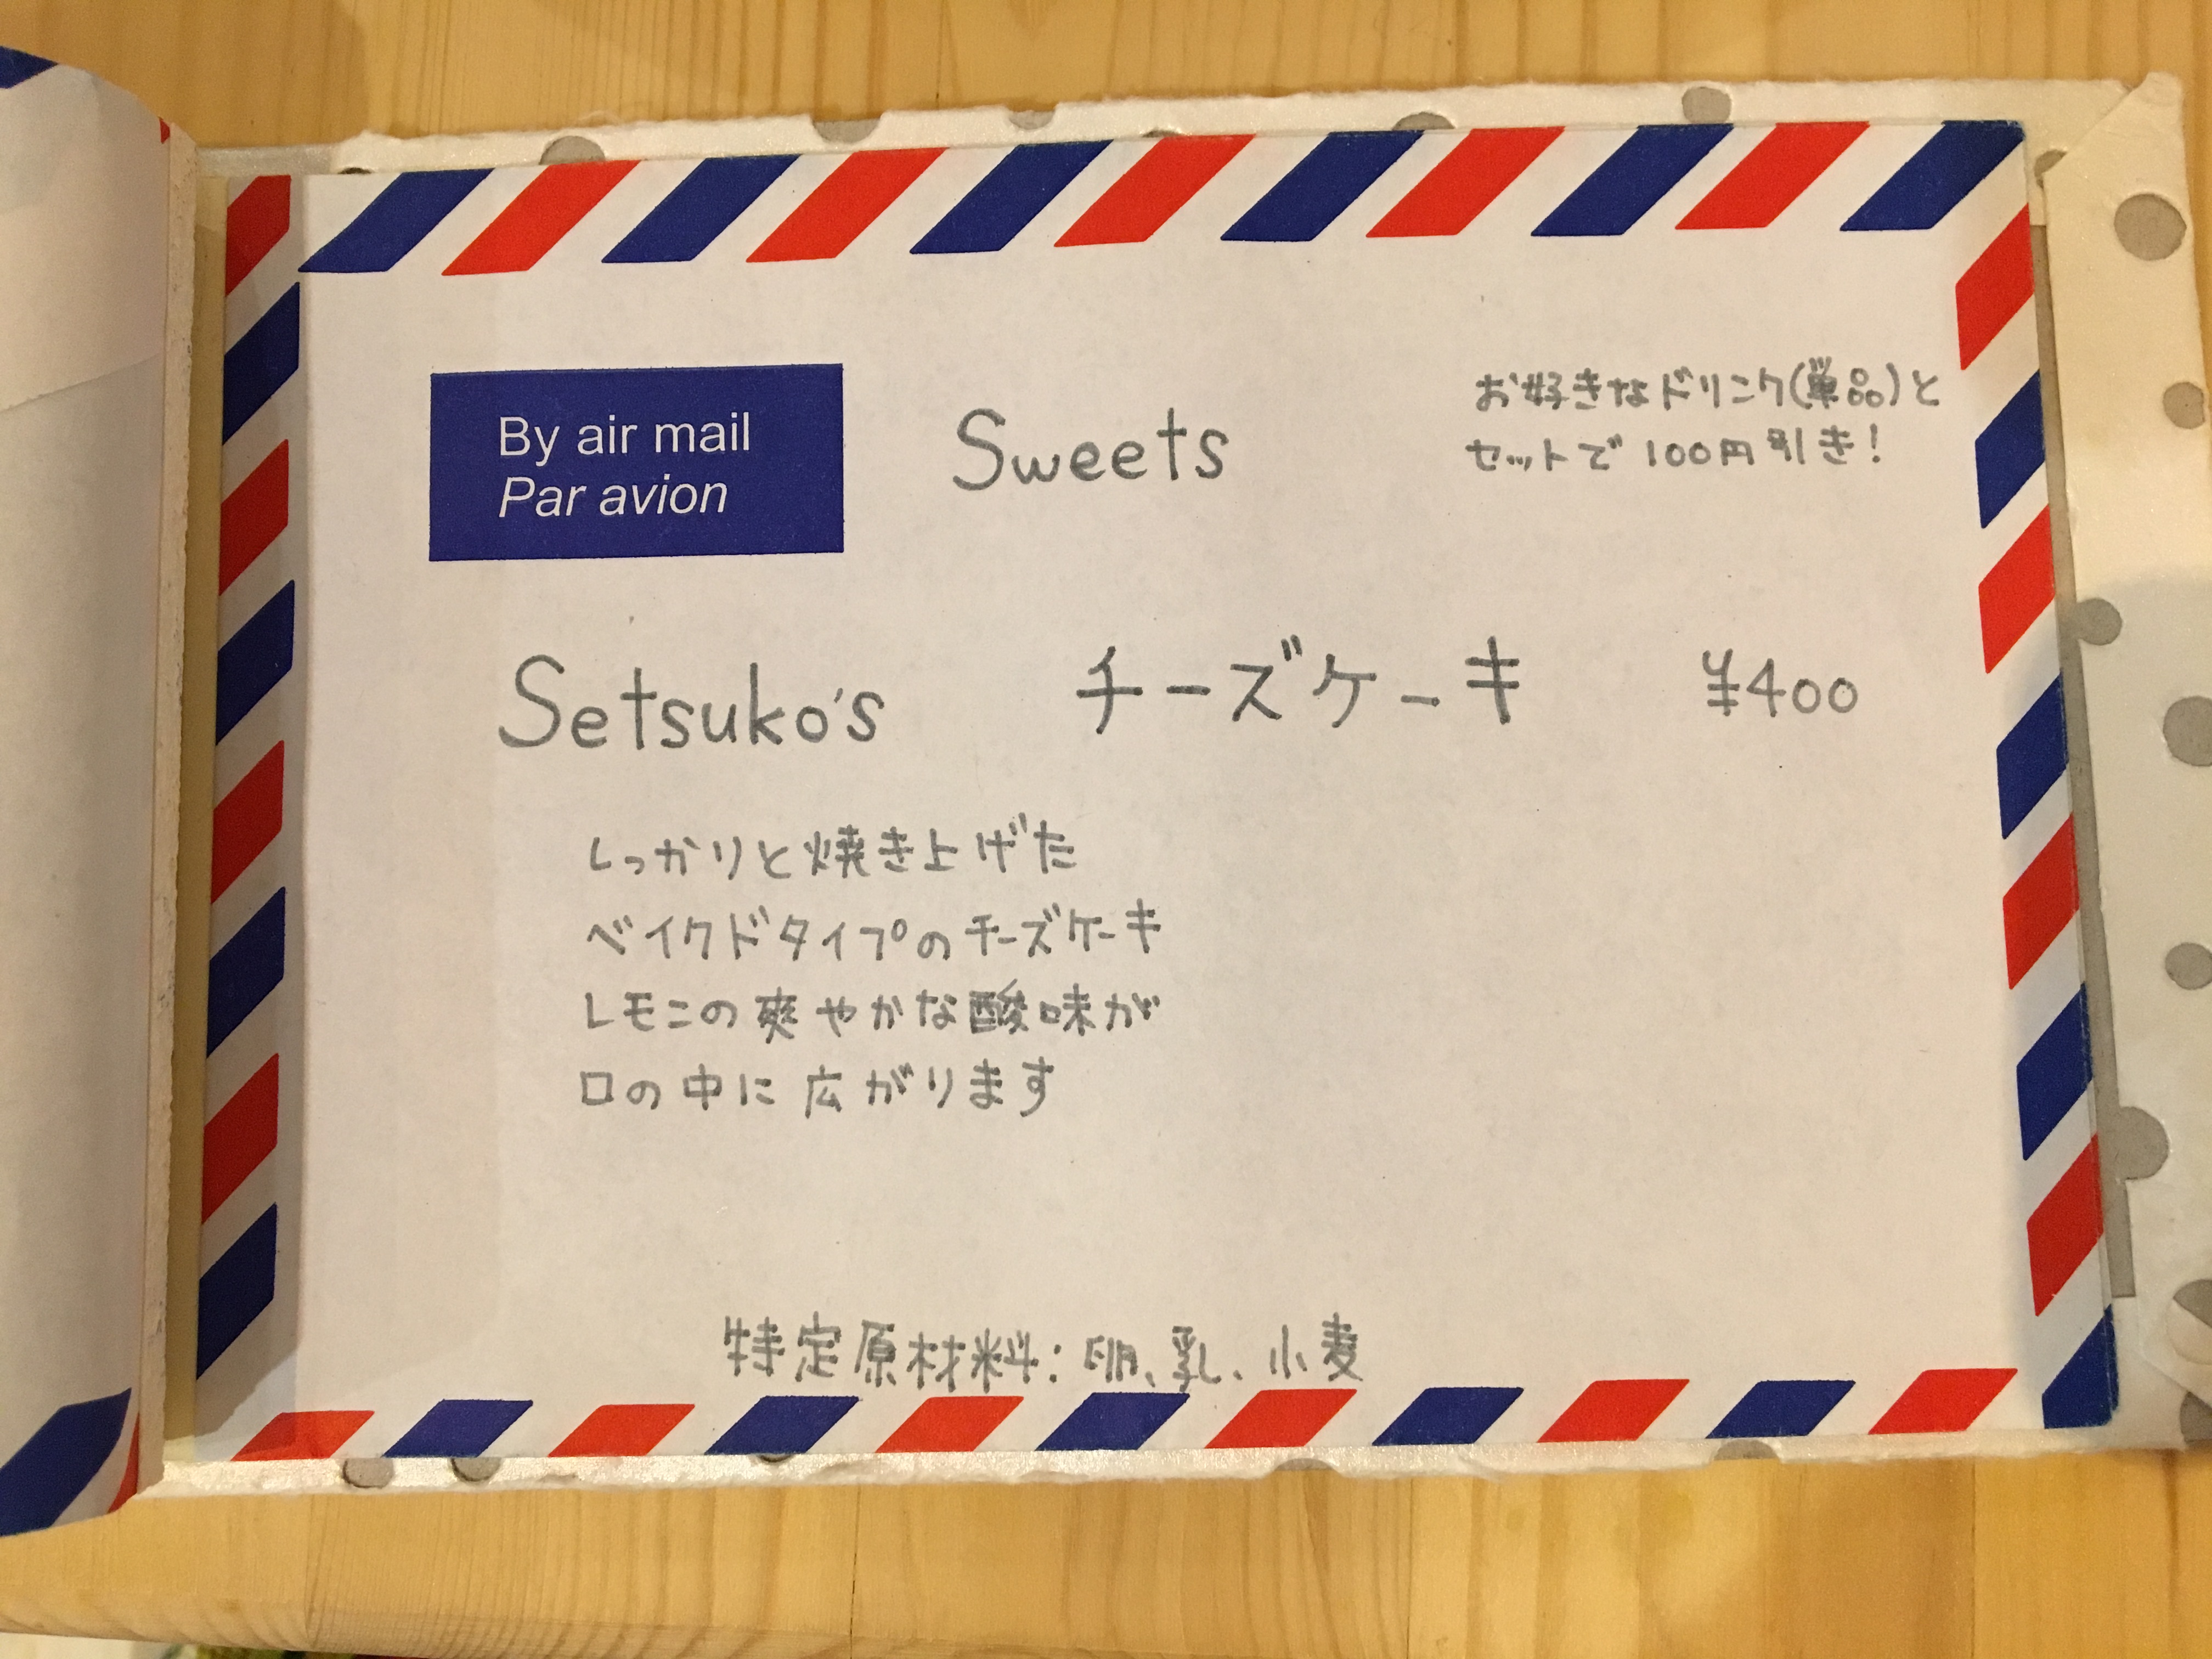 By air mail
Par avion
Sweets
お好きなドリンク(単品)と
セットで100円引き!
Setsuko's チーズケーキ ¥400
しっかりと焼き上げた
ベイクドタイプのチーズケーキ
レモンの爽やかな酸味が
口の中に広がります
特定原材料:卵、乳、小麦